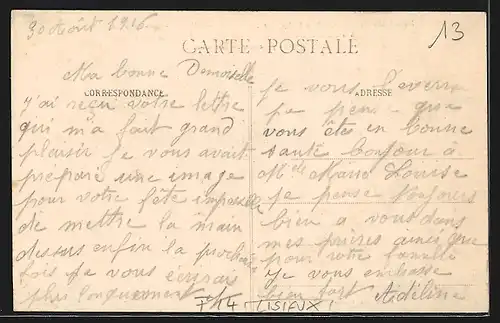 30 Août 1916
13
CARTE POSTALE
CORRESPONDANCE
ADRESSE
Ma bonne Demoiselle
j'ai reçu votre lettre
qui m'a fait grand
plaisir Je vous avait
préparé une image
pour votre fête
de mettre la main
dessus enfin la prochaine
fois je vous écrirais
plus longuement
je vous
je pense que
vous êtes en bonne
santé bonjour à
Mlle Marie Louise
je pense toujours
bien a vous dans
mes prières ainsi que
pour votre famille
Je vous embrasse
bien fort Adéline
14 LISIEUX